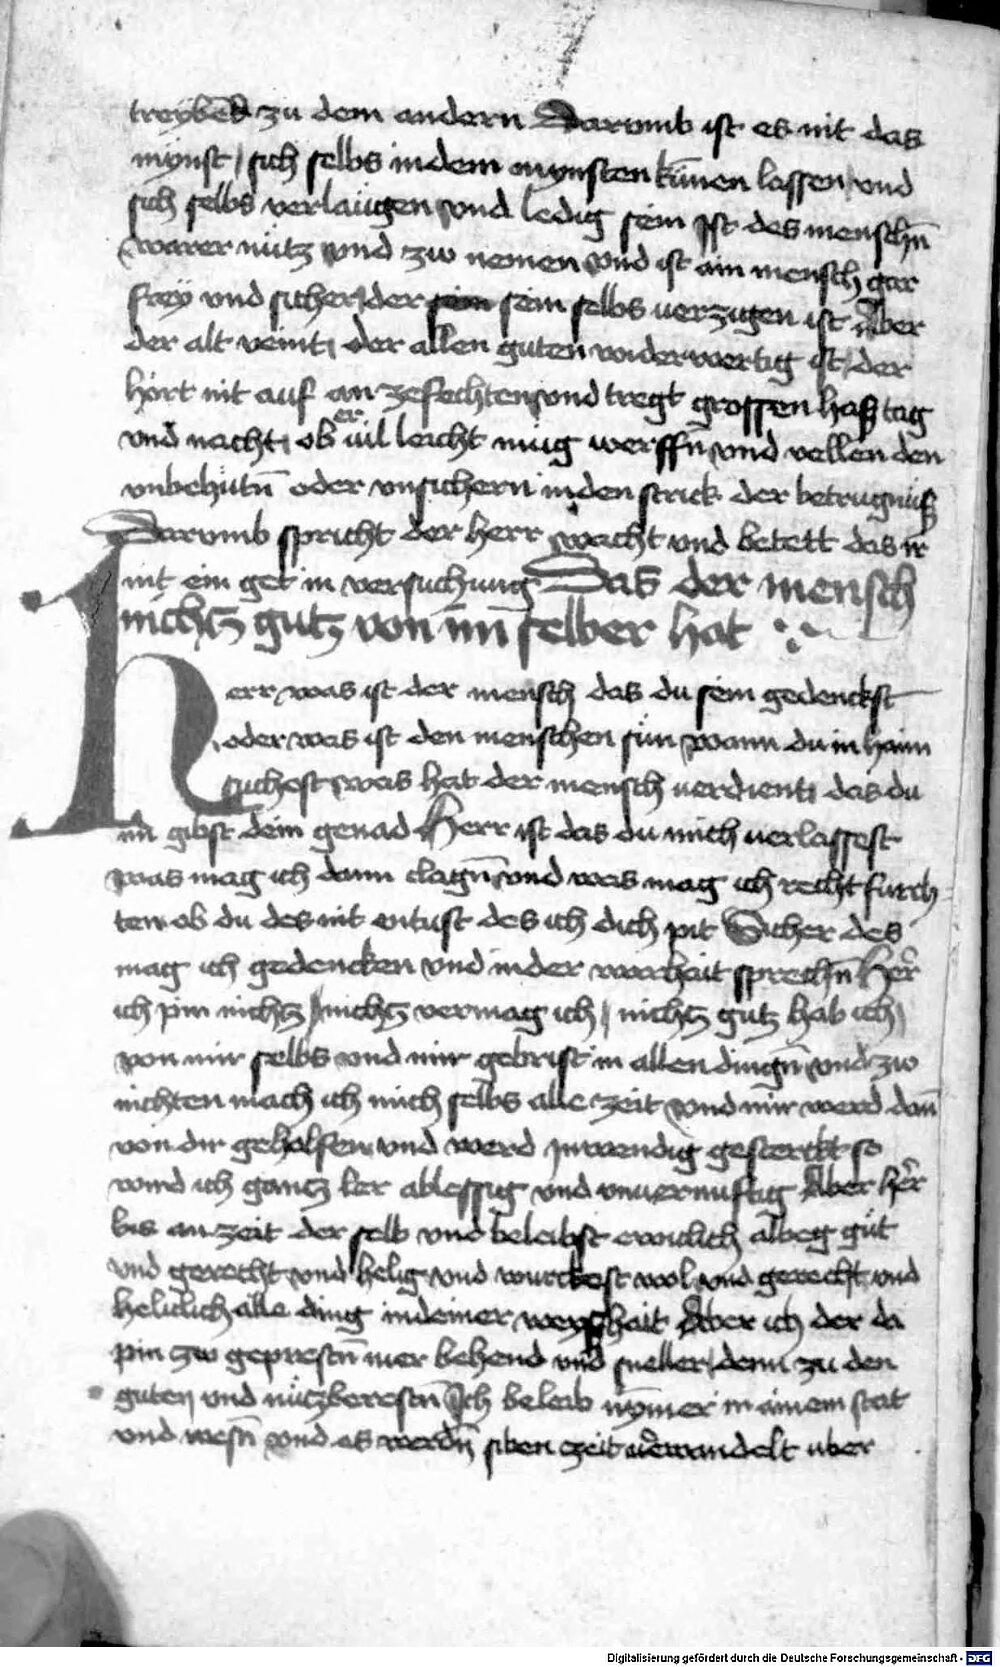 treyben zu dem andern Darumb ist es nit das
mynst / sich selbs in dem mynsten künen lassen / vnd
sich selbs verlaügen vnd ledig sein Ist des menschn̄
warer nütz vnd zw nemen vnd ist ain mensch gar
freÿ vnd sicher der sein selbs uerzigen ist Aber
der alt veint / der allen guten widerwertig ist / der
hort nit auf an zefechten vnd tregt grossen haß tag
vnd nacht / ob er vil leicht müg werffn̄ vnd vellen den
vnbehütn̄ oder vnsichern in den strick der betrugnüß
Darumb spricht der herr wacht vnd betett das ir
nit ein get in versuchung Das der mensch
nichtz gutz von im̄ selber hat
Herr was ist der mensch das du sein gedenckst
oder was ist den menschen sün wann du in haim
suchest was hat der mensch uerdient / das du
im gibst dein genad Herr ist das du mich uerlassest
was mag ich dann clagn̄ vnd was mag ich recht furch
ten ob du des nit entust des ich dich pit Sicher des
mag ich gedencken vnd in der warhait sprechn̄ Her̄
ich pin nichtz / nichtz vermag ich / nichtz gutz hab ich /
von mir selbs vnd mir gebrist in allen dingn̄ vnd zw
nichten mach ich mich selbs alle zeit vnd mir werd dan̄
von dir geholffen vnd werd inwendig gesterckt so
wird ich gantz ler ablessig vnd vnuernuftig Aber her̄
bis an zeit der selb vnd beleibst ewiclich albeg güt
vnd gerecht vnd helig vnd wurckest wol vnd gerecht vnd
heliclich alle ding in deiner weyshait Aber ich der da
pin zw geprestn̄ mer behend vnd sneller denn zu den
guten vnd nützberestn̄ Ich beleib nym̄er in ainem stat
vnd wesn̄ vnd es werdn̄ siben zeit uerwandelt uber
Digitalisierung gefördert durch die Deutsche Forschungsgemeinschaft - DFG